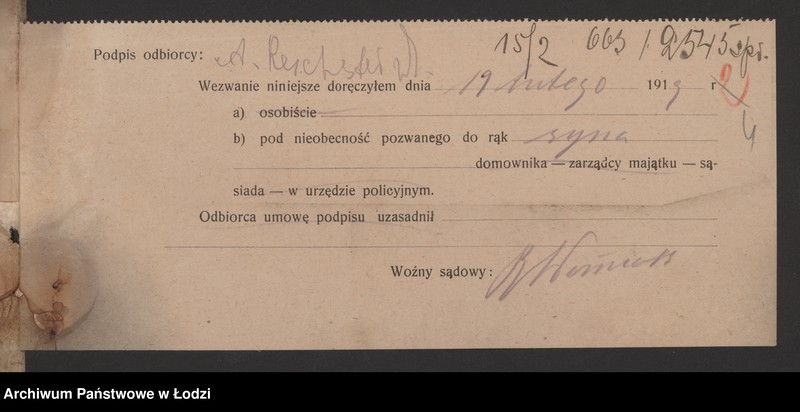 15/2 663 / 2545 spr.
Podpis odbiorcy: A.
Wezwanie niniejsze doręczyłem dnia 19 lutego 1919 r
2
4
a) osobiście
b) pod nieobecność pozwanego do rąk syna
domownika — zarządcy majątku — są-
siada — w urzędzie policyjnym.
Odbiorca umowę podpisu uzasadnił
Woźny sądowy:
Archiwum Państwowe w Łodzi